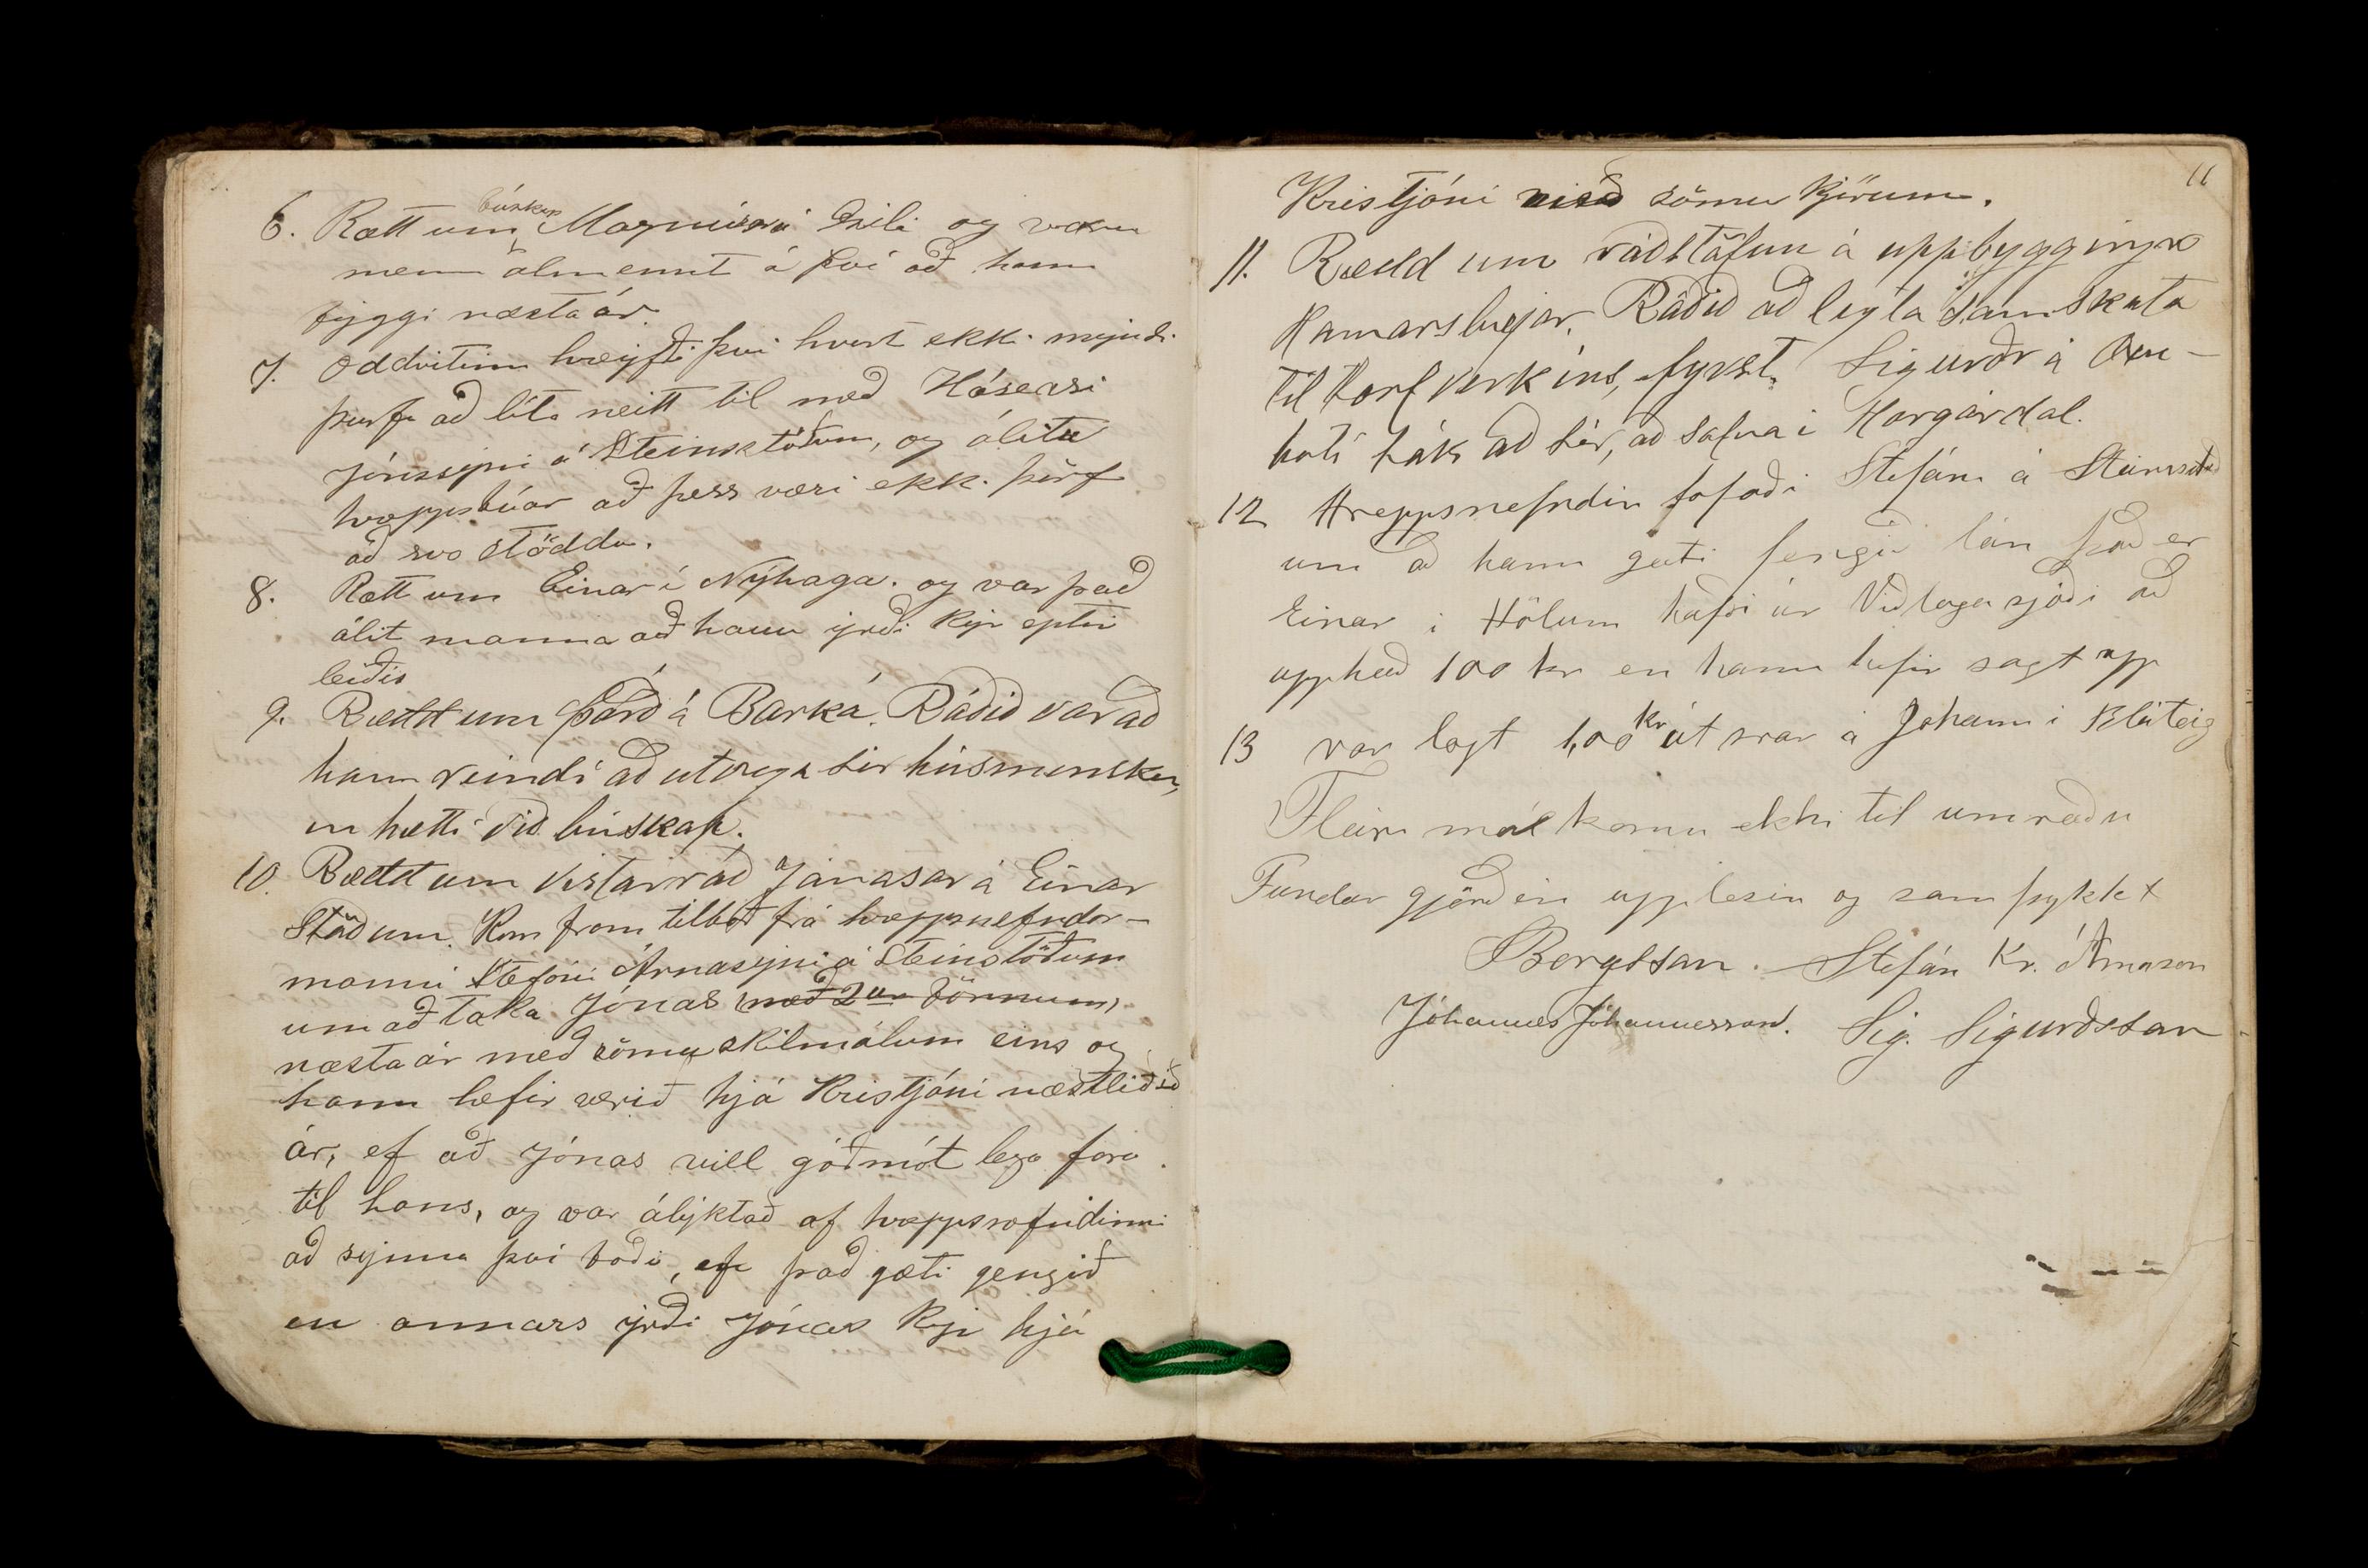 6. Rætt um búskap Magnúsar á Gili og voru
menn álmennt á því að hann
byggi næsta ár.
7. Oddvitinn hreyfði því hvort ekki myndi
þurfa að líta neitt til með Hásearsi
Jónssyni á Steinstöðum, og álitu
hreppsbúar að þess væri ekki þörf
að svo stöddu.
8. Rætt um Einar í Nýhaga. og var það
álit manna að hann yrði kyr eptir
leiðis
9. Rædd um Þórð á Barká. Ráðið var að
hann reindi að útvega sér húsmensku,
en hætti við búskap.
10. Rædd um vistarráð Jónasar á Einar
stöðum. Kom fram tilboð frá hreppsnefndar-
manni Stefáni Árnasyni á Steinstöðum
um að taka Jónas með 2ur börnum,
næsta ár með sömu skilmálum eins og
hann hefir verið hjá Kristjóni næstliðið
ár, ef að Jónas vill góðmótlega fara
til hans, og var ályktað af hreppsnefndinni
að synna því boði, ef það gæti gengið
en annars yrði Jónas kyr hjá
11
Kristjóni við sömu kjörum.
11. Rædd um ráðstöfun á uppbyggingu
Hamarsbæjar. Ráðið að leyta samskota
til torfverkins, fyrst. Sigurðr á Öxn-
hóli tók að sér, að safna í Hörgárdal.
12 Hreppsnefndin lofaði Stefáni á Steinsstöð
um að hann gæti fengið lán það er
Einar í Hólum hafði úr Viðlagasjóði að
upphæð 100 kr en hann hefir sagt upp
13 var lagt 1,00 kr útsvar á Jóhann í Flöguteig
Fleiri mál komu ekki til umræðu
Fundar gjörðin upplesin og samþykkt
SBergsson. Stefán Kr. Árnason
Jóhannes Jóhannesson. Sig. Sigurðsson